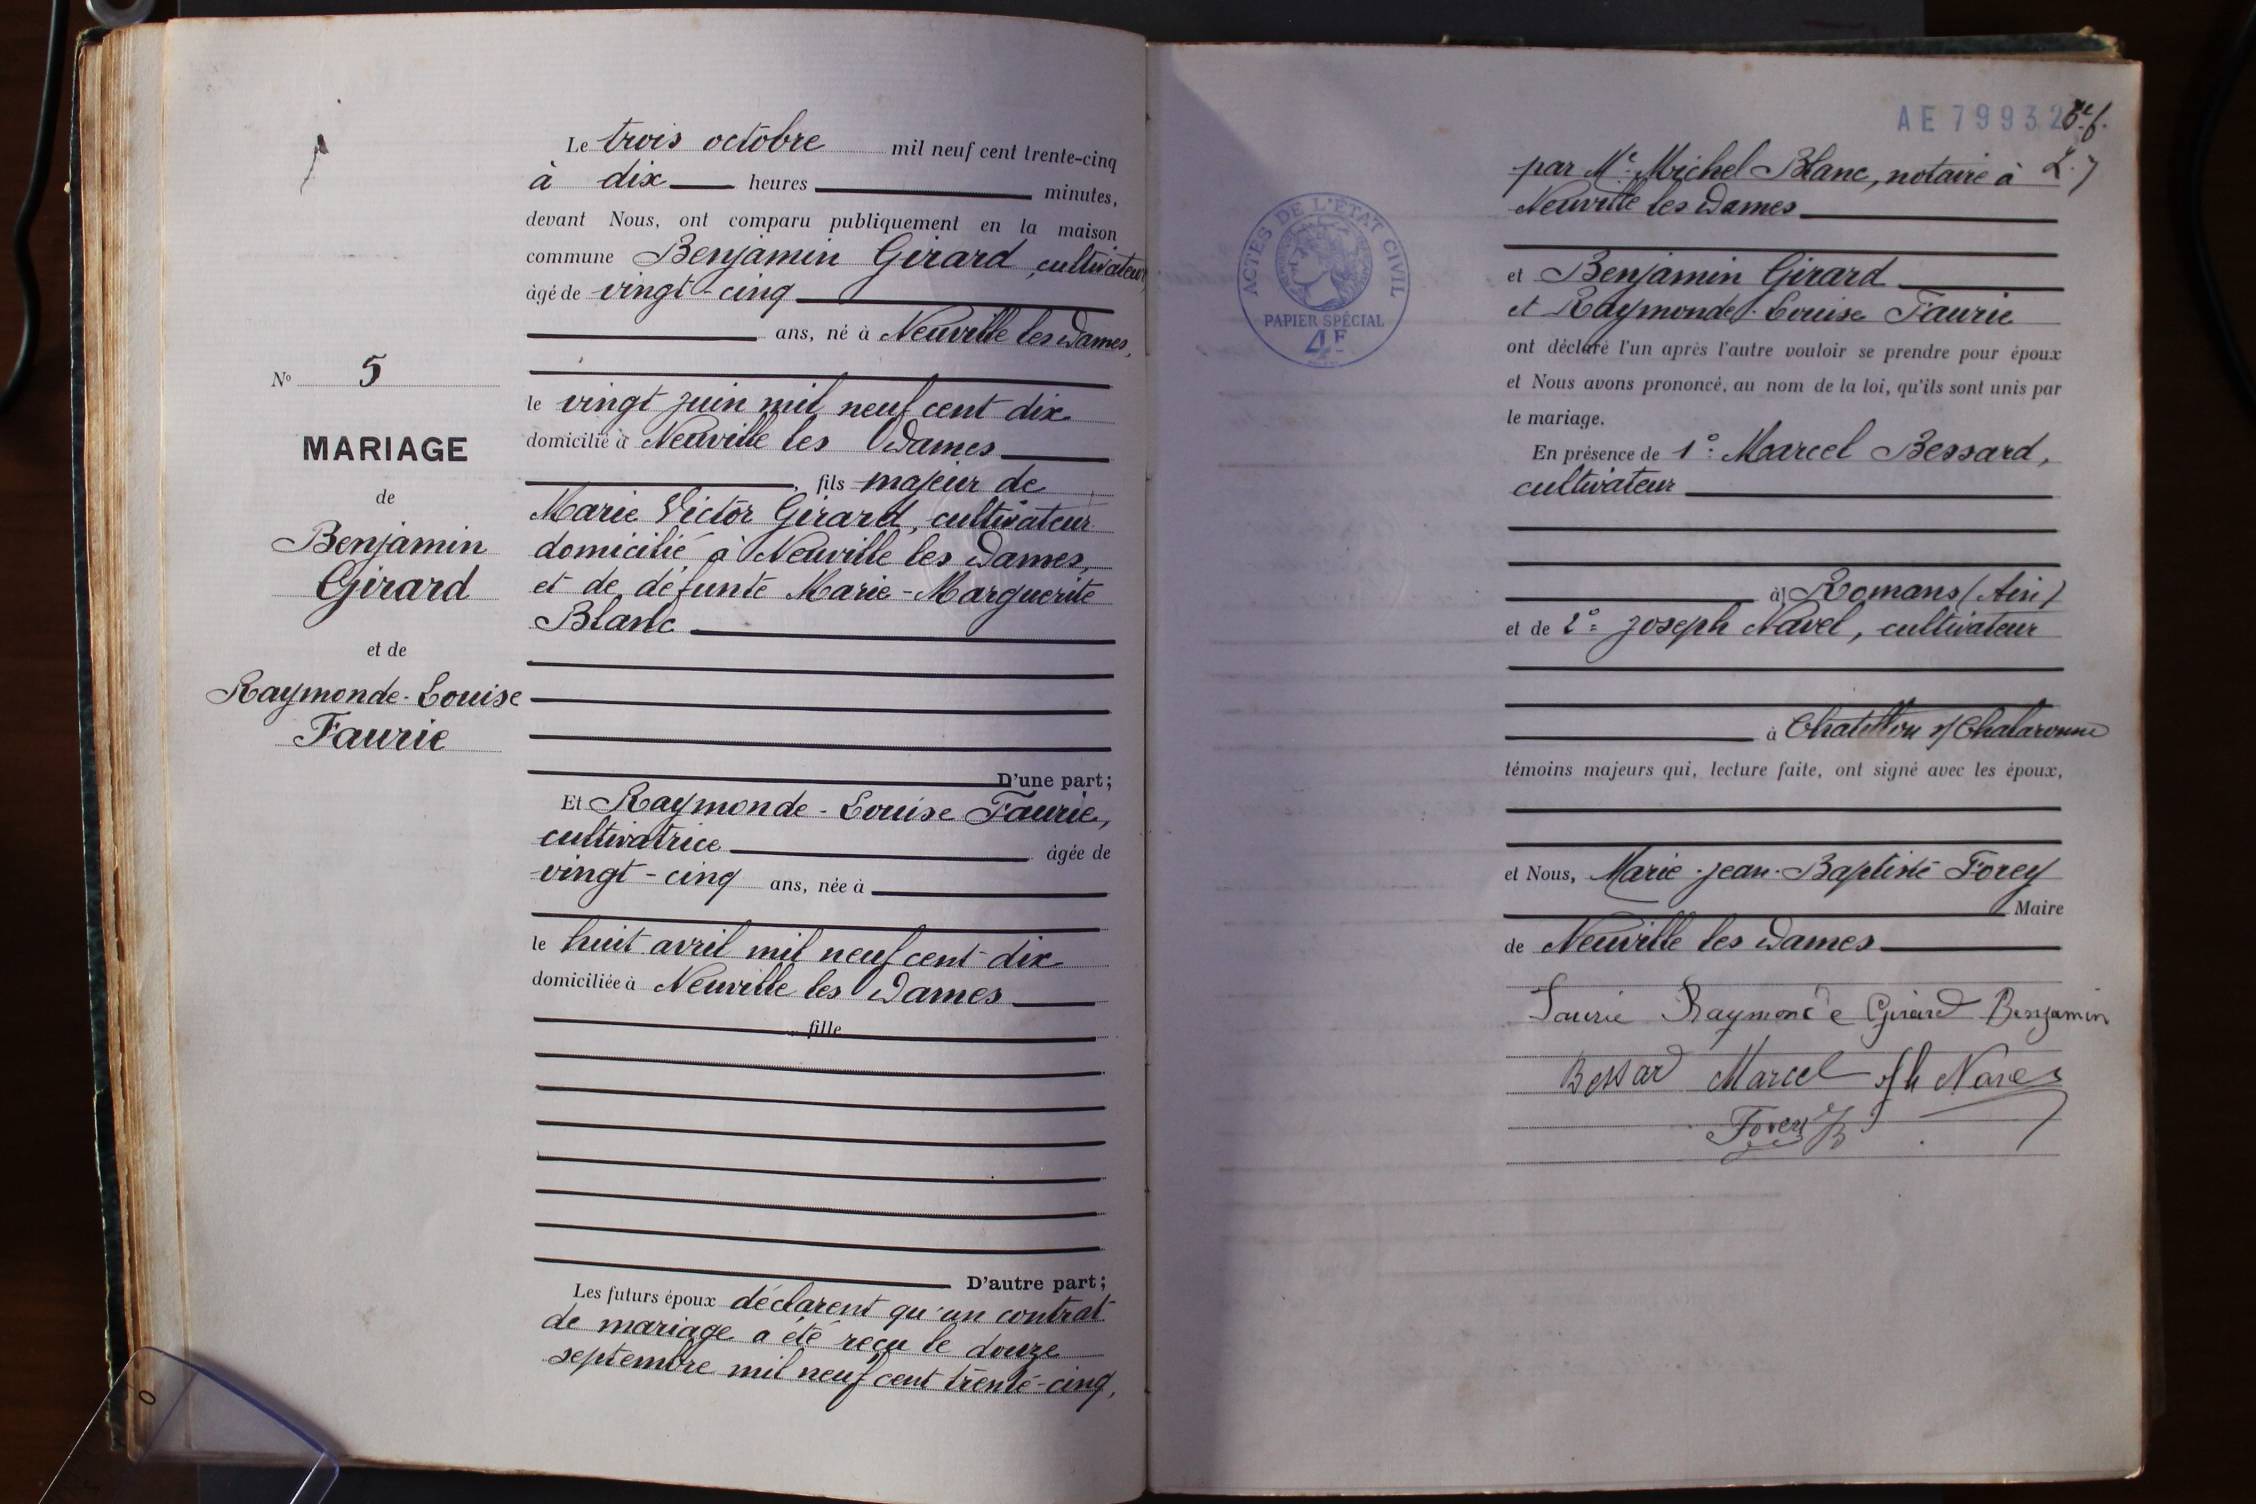 Le trois octobre mil neuf cent trente-cinq
à dix heures minutes,
devant Nous, ont comparu publiquement en la maison
commune Benjamin Girard, cultivateur
âgé de vingt-cinq
ans, né à Neuville les Dames,
le vingt juin mil neuf cent dix
domicilié à Neuville les Dames
, fils majeur de
Marie Victor Girard, cultivateur
domicilié à Neuville les Dames,
et de défunte Marie-Marguerite
Blanc
D'une part;
Et Raymonde-Louise Faurie,
cultivatrice âgée de
vingt-cinq ans, née à
le huit avril mil neuf cent dix
domiciliée à Neuville les Dames
, fille
D'autre part;
Les futurs époux déclarent qu'un contrat
de mariage a été reçu le douze
septembre mil neuf cent trente-cinq,
No 5
MARIAGE
de
Benjamin
Girard
et de
Raymonde-Louise
Faurie
AE 79932
par Me Michel Blanc, notaire à
Neuville les Dames
et Benjamin Girard
et Raymonde-Louise Faurie
ont déclaré l'un après l'autre vouloir se prendre pour époux
et Nous avons prononcé, au nom de la loi, qu'ils sont unis par
le mariage.
En présence de 1º: Marcel Bessard,
cultivateur
à Romans (Ain)
et de 2º= Joseph Navel, cultivateur
à Chatillon s/ Chalaronne
témoins majeurs qui, lecture faite, ont signé avec les époux,
et Nous, Marie-Jean-Baptiste Forey
Maire
de Neuville les Dames
Faurie Raymonde Girard Benjamin
Bessard Marcel Navel
Forey JB
ACTES DE L'ÉTAT CIVIL
PAPIER SPÉCIAL
4F